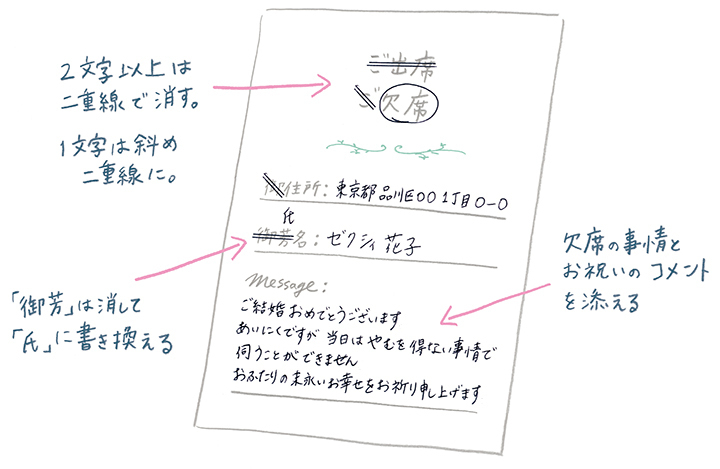 2文字以上は
二重線で消す。
1文字は斜め
二重線に。
「御芳」は消して
「氏」に書き換える
ご出席
ご欠席
御住所：東京都品川区〇〇 1丁目〇-〇
氏
御芳名：ゼクシィ 花子
Message：
ご結婚おめでとうございます
あいにくですが 当日は やむを得ない事情で
伺うことができません
おふたりの末永いお幸せをお祈り申し上げます
欠席の事情と
お祝いの コメント
を添える